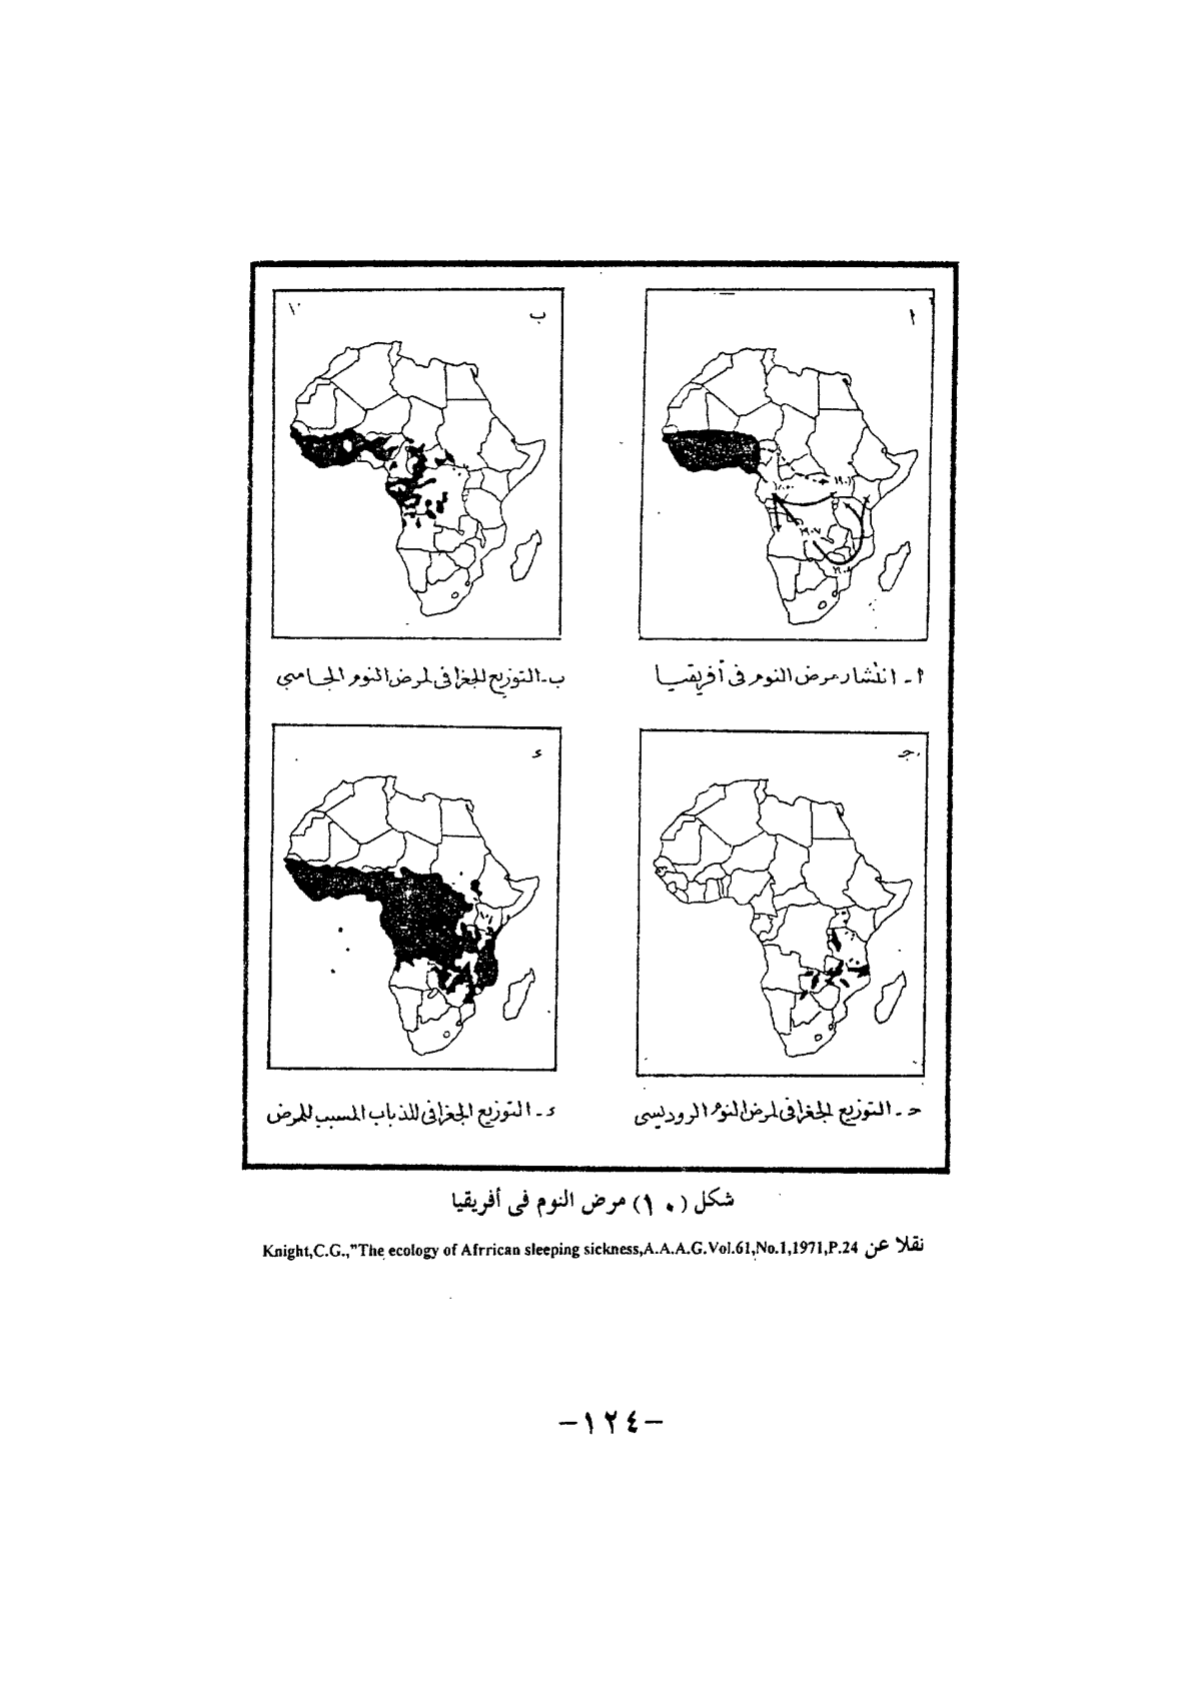 ا
ب
ا - انتشار مرض النوم فى أفريقيا
ب - التوزيع الجغرافى لمرض النوم الجامبى
جـ
ء
حـ - التوزيع الجغرافى لمرض النوم الروديسى
ء - التوزيع الجغرافى للذباب المسبب للمرض
شكل (١٠) مرض النوم فى أفريقيا
نقلا عن Knight,C.G.,"The ecology of Afrrican sleeping sickness,A.A.A.G.Vol.61,No.1,1971,P.24
-١٢٤-